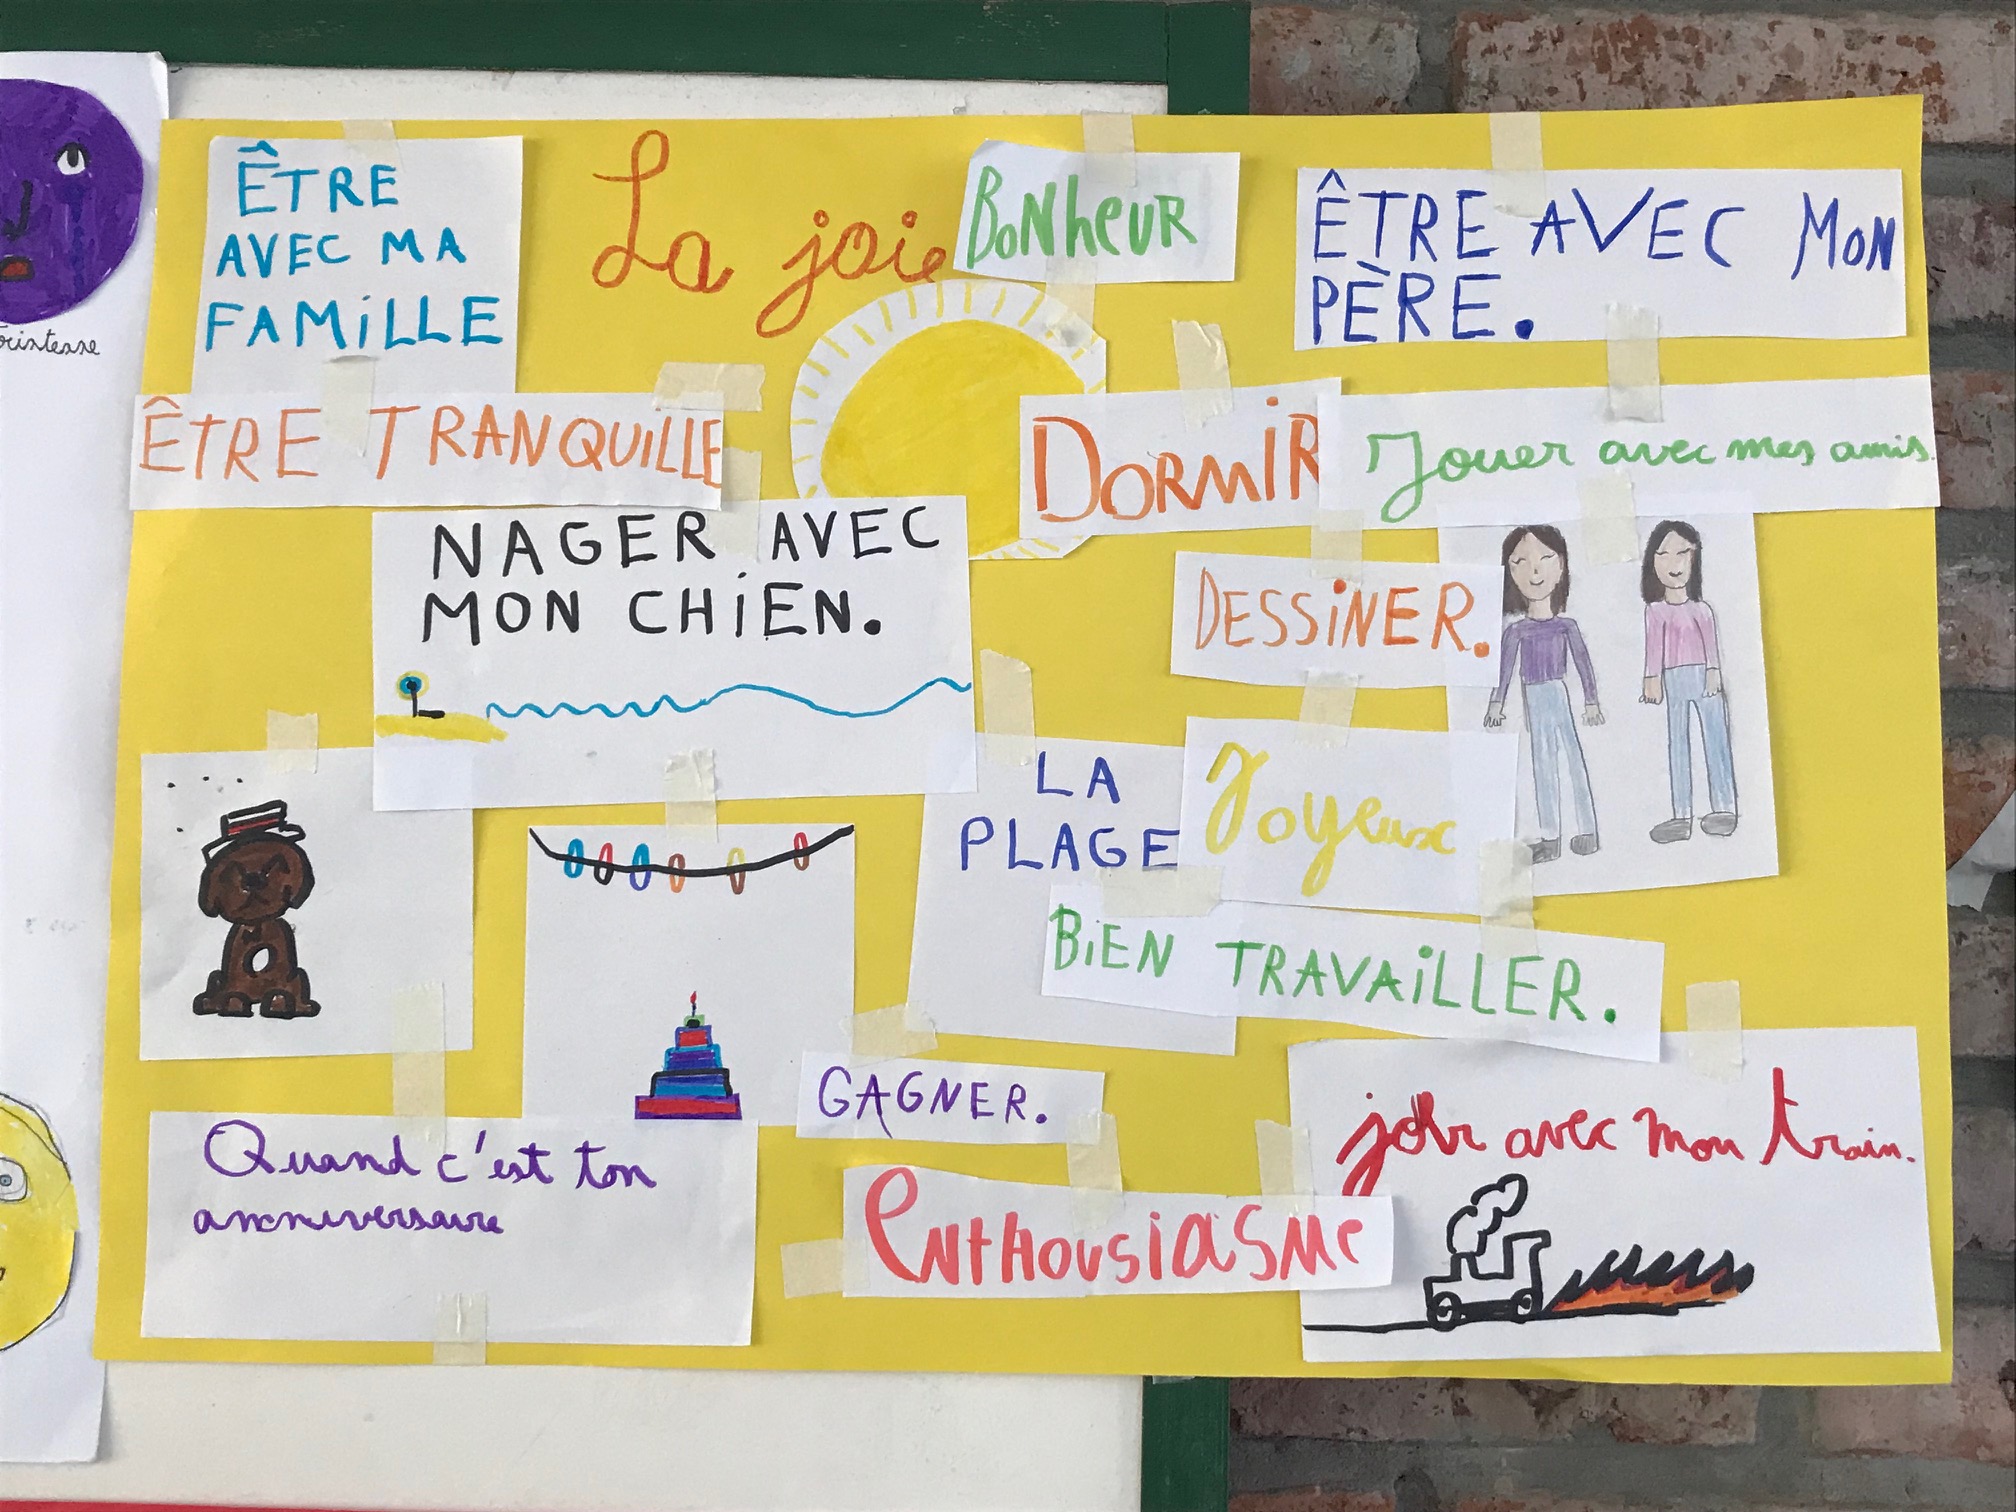 ÊTRE
AVEC MA
FAMILLE
La joie
BONHEUR
ÊTRE AVEC MON
PÈRE.
ÊTRE TRANQUILLE
DORMIR
Jouer avec mes amis.
NAGER AVEC
MON CHIEN.
DESSINER.
LA
PLAGE
Joyeux
BIEN TRAVAILLER.
GAGNER.
Quand c'est ton
anniversaire
Enthousiasme
avec mon train.